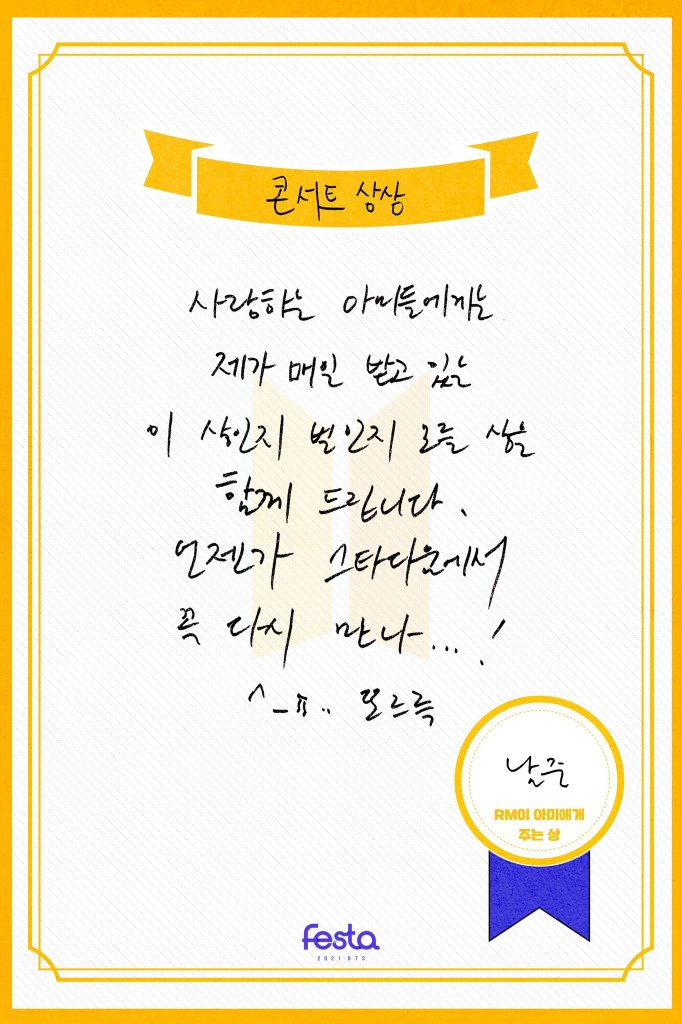 콘서트 상상
사랑하는 아미들에게는
제가 매일 받고 있는
이 상인지 벌인지 모를 상을
함께 드립니다.
언젠가 스타다운에서
꼭 다시 만나...!
^_ㅠ.. 또르륵
남준
RM이 아미에게
주는 상
festa
2021 BTS